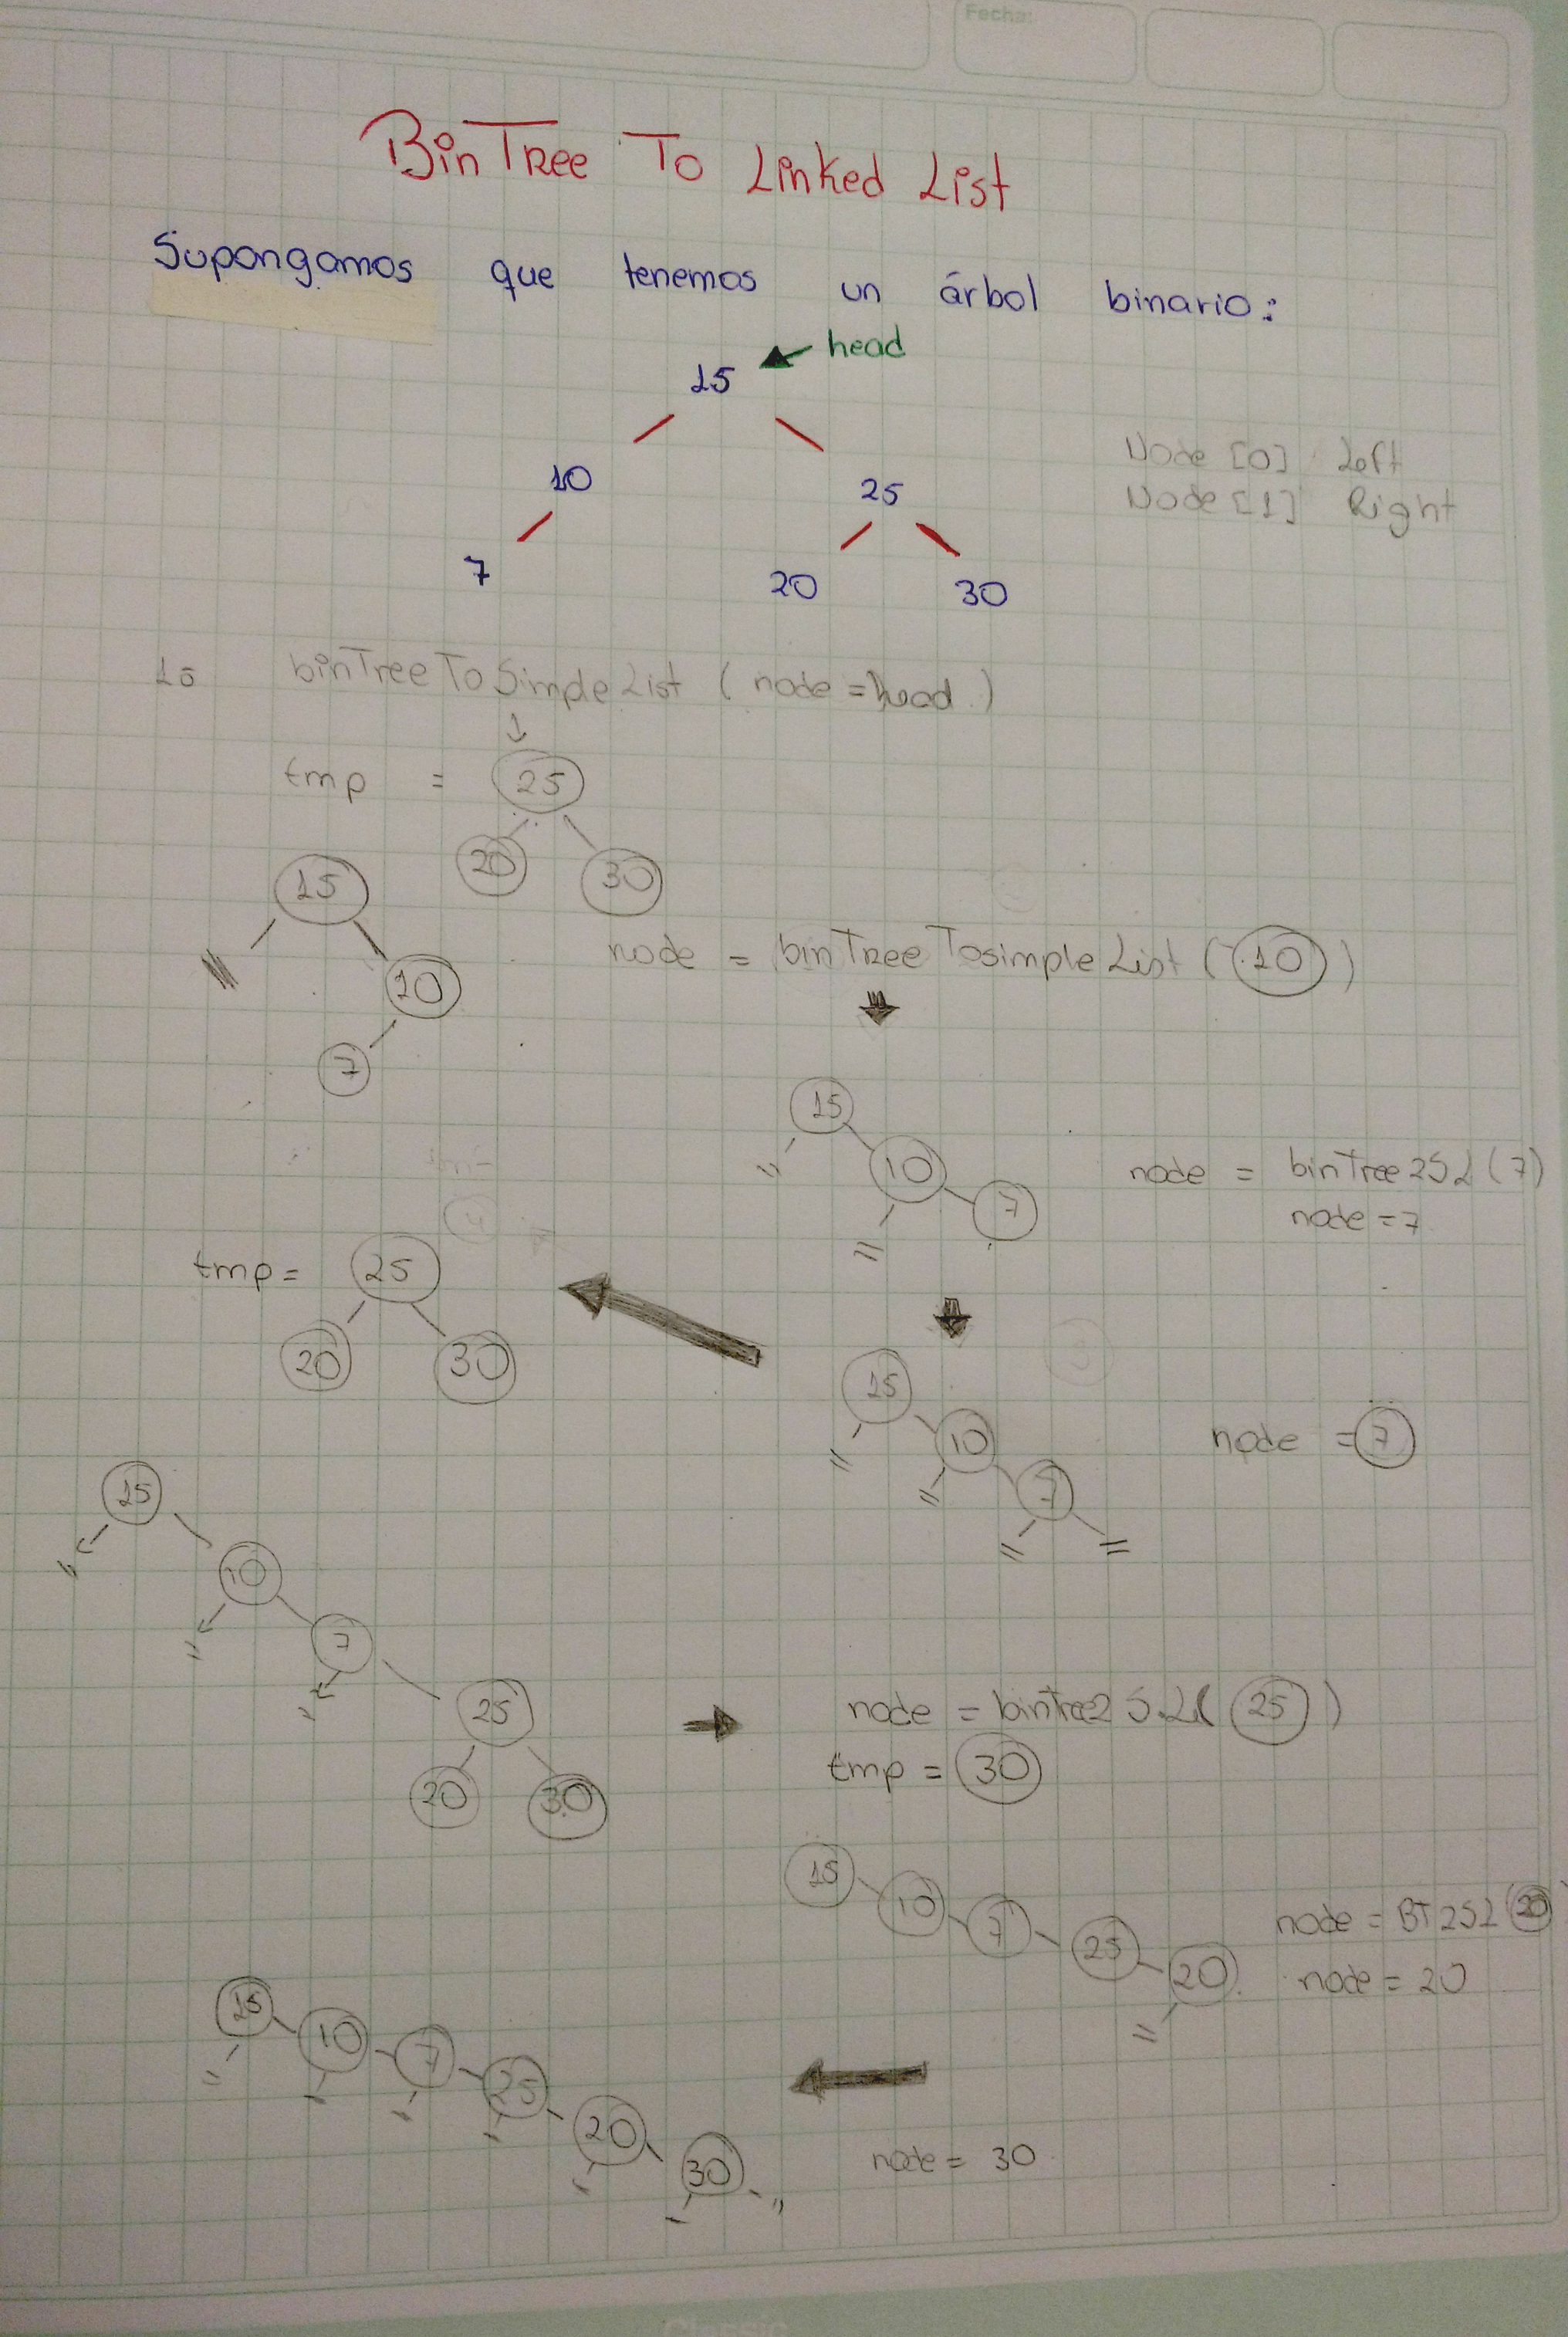 Fecha:
BinTree To Linked List
Supongamos que tenemos un árbol binario:
head
15
10 25
Node [0] Left
Node [1] Right
7 20 30
15 binTreeToSimpleList ( node = head )
tmp = 25
20 30
15
10
7
node = binTreeTosimpleList ( 10 )
15
10
7
node = binTree2SL (7)
node = 7
tmp = 25
20 30
15
10
7
node = 7
15
10
7
25
20 30
node = binTree2SL ( 25 )
tmp = 30
15 10 7 25 20
node = BT2SL (20)
node = 20
15 10 7 25 20 30
node = 30
Classic